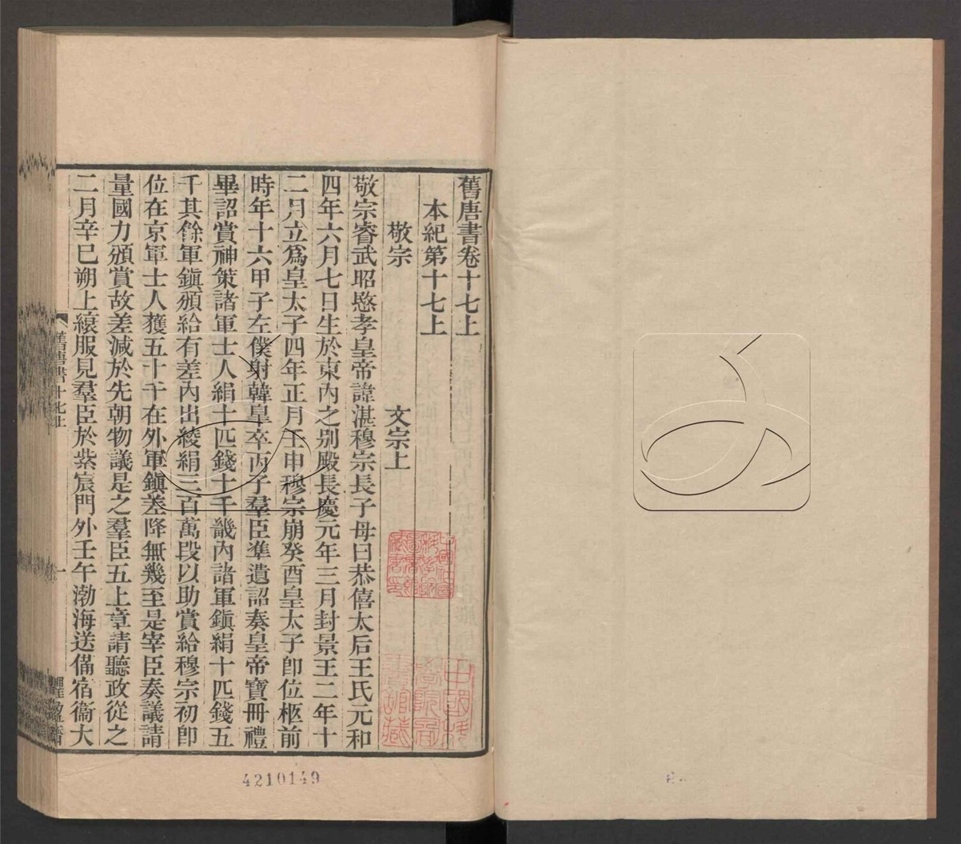 舊唐書卷十七上
本紀第十七上
敬宗 文宗上
敬宗睿武昭愍孝皇帝諱湛穆宗長子母曰恭僖太后王氏元和
四年六月七日生於東內之別殿長慶元年三月封景王二年十
二月立爲皇太子四年正月壬申穆宗崩癸酉皇太子卽位柩前
時年十六甲子左僕射韓皐卒丙子羣臣準遺詔奏皇帝寶冊禮
畢詔賞神策諸軍士人絹十匹錢十千畿內諸軍鎭絹十匹錢五
千其餘軍鎭頒給有差內出綾絹三百萬段以助賞給穆宗初卽
位在京軍士人獲五十千在外軍鎭差降無幾至是宰臣奏議請
量國力頒賞故差減於先朝物議是之羣臣五上章請聽政從之
二月辛巳朔上縗服見羣臣於紫宸門外壬午渤海送備宿衞大
舊唐書十七上
一
4210149